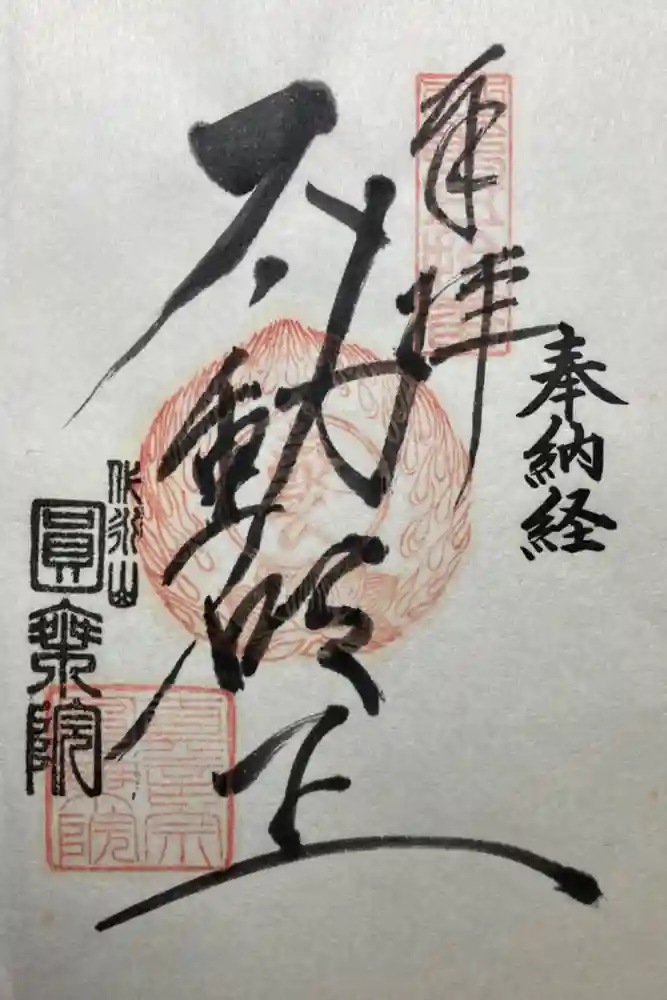 奉納経
奉拝
不動明王
代永山
圓乘院